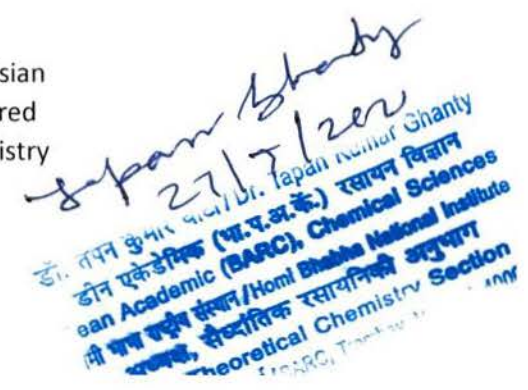 sian
red
istry
Tapan Ghanty
27/7/202
डॉ. तपन कुमार घांटी/Dr. Tapan Kumar Ghanty
डीन एकेडेमिक (भा.प.अ.कें.) रसायन विज्ञान
ean Academic (BARC), Chemical Sciences
मी भाभा राष्ट्रीय संस्थान/Homi Bhabha National Institute
अध्यक्ष, सैध्दांतिक रसायनिकी अनुभाग
heoretical Chemistry Section
BARC,